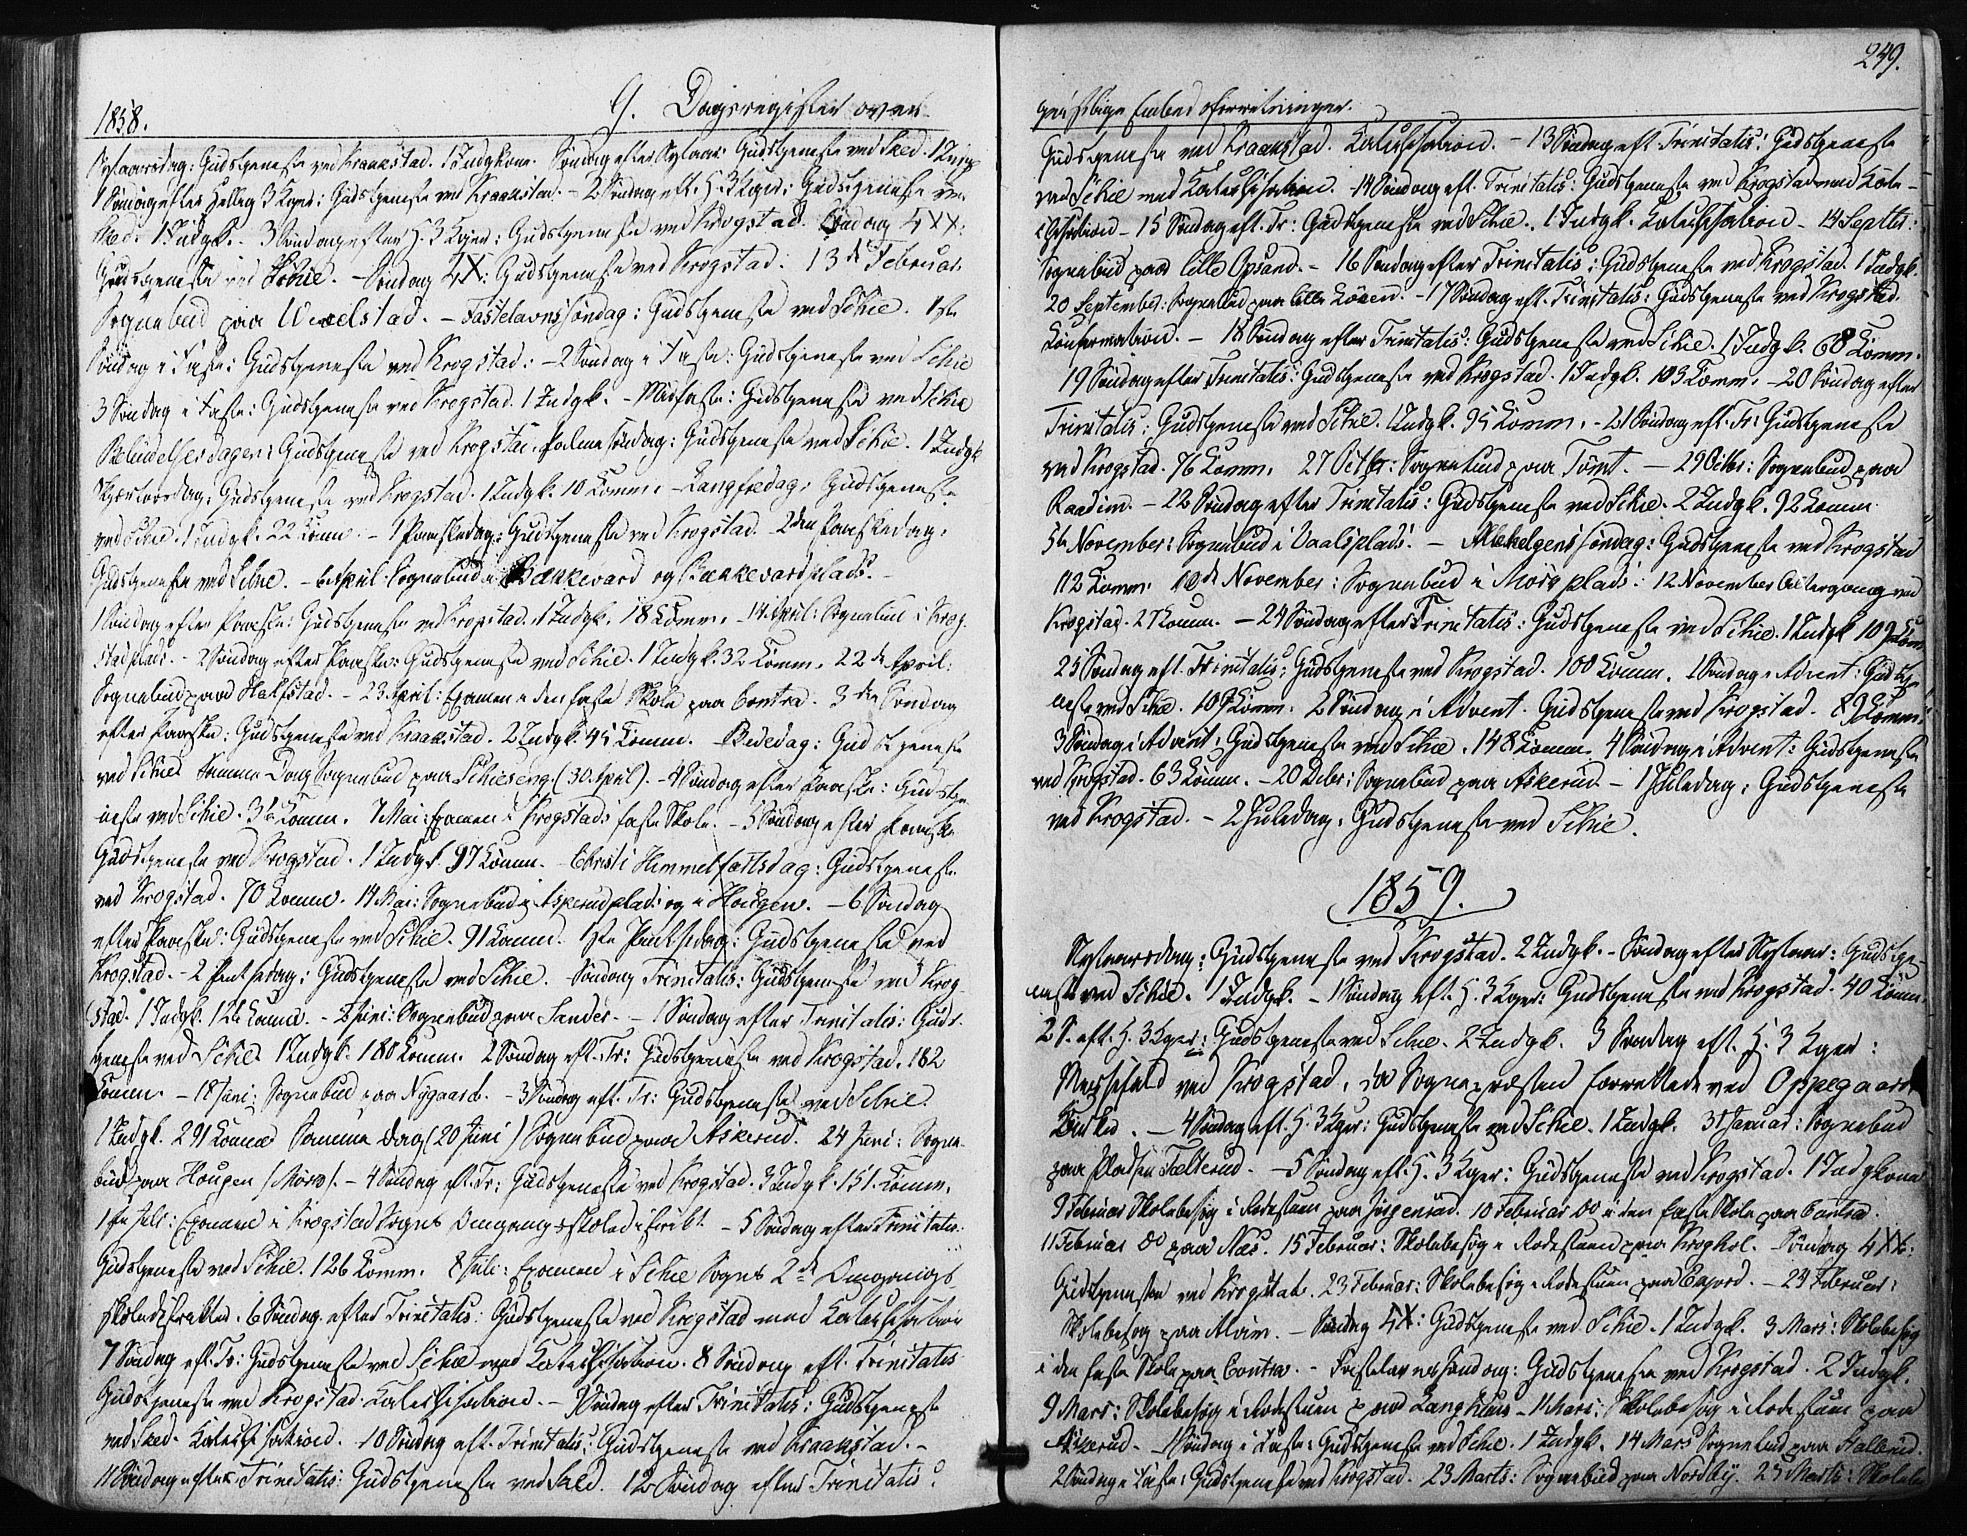 1858.
9. Dagsregister over
Nytaarsdag: Gudstjeneste ved Kraakstad. 1 Indgkone. Søndag efter Nytaar: Gudstjeneste ved Skie. 1 Indgk
1 Søndag efter Hellig 3 Kger: Gudstjeneste ved Kraakstad. - 2 Søndag eft. H. 3 Kger: Gudstjeneste ved
Skie. 1 Indgk. - 3 Søndag efter H. 3 Kger: Gudstjeneste ved Krogstad. Søndag 4XX:
Gudstjeneste ved Schie. - Søndag 4X: Gudstjeneste ved Krogstad: 13de Februar
Sognebud paa Wevelstad. - Fastelavnssøndag: Gudstjeneste ved Schie. 1ste
Søndag i Faste: Gudstjeneste ved Krogstad: - 2 Søndag i Faste: Gudstjeneste ved Schie
3 Søndag i Faste: Gudstjeneste ved Krogstad. 1 Indgk. - Midfaste: Gudstjeneste ved Schie
Bebudelsesdagen: Gudstjeneste ved Krogstad. Palmesøndag: Gudstjeneste ved Schie. 1 Indgk
Skjærtorsdag: Gudstjeneste ved Krogstad. 1 Indgk. 10 Komm. - Langfredag: Gudstjeneste
ved Schie. 1 Indgk. 22 Komm. - 1 Paaskedag: Gudstjeneste ved Krogstad. 2den Paaskedag:
Gudstjeneste ved Schie. - 6 April: Sognebud i Bækkevard og Bækkevardplads. -
1 Søndag efter Paaske: Gudstjeneste ved Krogstad. 1 Indgk. 18 Komm. - 14 April: Sognebud i Krog-
stadplads. - 2 Søndag efter Paaske: Gudstjeneste ved Schie. 1 Indgk. 32 Komm. 22de April:
Sognebud paa Halfstad. - 23 April: Examen i den faste Skole paa Contra. 3die Søndag
efter Paaske: Gudstjeneste ved Kraakstad. 2 Indgk. 45 Komm. Bededag: Gudstjeneste
ved Schie. Samme Dag Sognebud paa Schieseng. (30. April). - 4 Søndag efter Paaske: Gudstje-
neste ved Schie. 36 Komm. 7 Mai: Examen i Krogstads faste Skole. - 5 Søndag efter Paaske
Gudstjeneste ved Krogstad. 1 Indgk. 97 Komm. - Christi Himmelfartsdag: Gudstjeneste
ved Krogstad. 70 Komm. 14 Mai: Sognebud i Askerudplads og i Haugen. - 6 Søndag
efter Paaske: Gudstjeneste ved Schie. 91 Komm. 1ste Pintsedag: Gudstjeneste ved
Krogstad. - 2 Pintsedag: Gudstjeneste ved Schie. Søndag Trinitatis: Gudstjeneste ved Krog-
stad. 1 Indgk. Komm. - Juni: Sognebud paa Sander. - 1 Søndag efter Trinitatis: Guds-
tjeneste ved Schie. 1 Indgk. 180 Komm. 2 Søndag eft. Tr: Gudstjeneste ved Krogstad. 182
Komm. - 18 Juni: Sognebud paa Nygaard. - 3 Søndag eft. Tr: Gudstjeneste ved Schie.
1 Indgk. 291 Komm. Samme Dag (20 Juni) Sognebud paa Askerud. 24 Juni: Sogne-
bud paa Haugen (Moro). - 4 Søndag eft. Tr: Gudstjeneste ved Krogstad. 3 Indgk. 151. Komm.
1ste Juli: Examen i Krogstad Sogns Omgangsskoledistrikt. - 5 Søndag efter Trinitatis:
Gudstjeneste ved Schie. 126 Komm. 8 Juli: Examen i Schie Sogns 2de Omgangs-
skoledistrikter. 6 Søndag efter Trinitatis: Gudstjeneste ved Krogstad med Katechisation
7 Søndag eft. Tr: Gudstjeneste ved Schie med Katechisation. 8 Søndag eft. Trinitatis
Gudstjeneste ved Krogstad. Katechisation. - 9 Søndag efter Trinitatis: Gudstjeneste
ved Skie. Katechisation. - 10 Søndag eft. Trinitatis: Gudstjeneste ved Kraakstad. -
11 Søndag efter Trinitatis: Gudstjeneste ved Skie. 12 Søndag efter Trinitatis:
249.
geistlige Embedsforretninger.
Gudstjeneste ved Kraakstad. Katechisation. - 13 Søndag eft Trinitatis: Gudstjeneste
ved Schie med Katechisation. 14 Søndag eft. Trinitatis: Gudstjeneste ved Krogstad med Kate-
chisation - 15 Søndag eft. Tr: Gudstjeneste ved Schie. 1 Indgk. Katechisation - 14 Septbr:
Sognebud paa lille Opsand. - 16 Søndag efter Trinitatis: Gudstjeneste ved Krogstad. 1 Indgk.
20 September: Sognebud paa lille Løken. - 17 Søndag eft. Trinitatis: Gudstjeneste ved Krogstad.
Konfirmation. - 18 Søndag efter Trinitatis: Gudstjeneste ved Schie. 1 Indgk. 68 Komm.
19 Søndag efter Trinitatis: Gudstjeneste ved Krogstad. 1 Indgk. 103 Komm. - 20 Søndag efter
Trinitatis: Gudstjeneste ved Schie. 1 Indgk. 95 Komm. - 21 Søndag eft. Tr: Gudstjeneste
ved Krogstad. 76 Komm. 27 Octbr: Sognebud paa Tomt. - 29 Octbr: Sognebud paa
Raadim. - 22 Søndag efter Trinitatis: Gudstjeneste ved Schie. 2 Indgk. 92 Komm
5te November: Sognebud i Vaalsplads. - Allehelgenssøndag: Gudstjeneste ved Krogstad
112 Komm. 10de November: Sognebud i Mörkplads: 12 November Altergang ved
Krogstad. 27 Komm. - 24 Søndag efter Trinitatis: Gudstjeneste ved Schie. 1 Indgk. 109 Komm.
25 Søndag eft. Trinitatis: Gudstjeneste ved Krogstad. 100 Komm. 1 Søndag i Advent: Gudstje-
neste ved Schie. 109 Komm. 2 Søndag i Advent. Gudstjeneste ved Krogstad. 89 Komm.
3 Søndag i Advent: Gudstjeneste ved Schie. 148 Komm. 4 Søndag i Advent: Gudstjeneste
ved Krogstad. 63 Komm. - 20 Decbr: Sognebud paa Askerud - 1 Juledag: Gudstjeneste
ved Krogstad. - 2 Juledag: Gudstjeneste ved Schie.
1859.
Nytaarsdag: Gudstjeneste ved Krogstad. 2 Indgk. - Søndag efter Nytaar: Gudstje-
neste ved Schie. 1 Indgk. - 1 Søndag eft. H. 3 Kger: Gudstjeneste ved Krogstad. 40 Komm.
2 S. eft. H. 3 Kger: Gudstjeneste ved Schie. 2 Indgk. 3 Søndag eft. H. 3 Kger:
Messefald ved Krogstad, da Sognepræsten forrettede ved Oppegaard
Kirke. - 4 Søndag eft. H. 3 Kger: Gudstjeneste ved Schie. 1 Indgk. 31 Januar: Sognebud
paa Pladsen Tælterud. - 5 Søndag eft. H. 3 Kger: Gudstjeneste ved Krogstad. 1 Indgkone
9 Februar Skolebesøg i Rodestuen paa Jørgenrud. 10 Februar Do i den faste Skole paa Contra.
11 Februar Do paa Næs. 15 Februar: Skolebesøg i Rodestuen paa Kroghol. Søndag 4XX:
Gudstjeneste ved Krogstad. 23 Februar: Skolebesøg i Rodestuen paa . - 24 Februar:
Skolebesøg paa Alaim. - Søndag 4X: Gudstjeneste ved Schie. 1 Indgk. 3 Mars: Skolebesøg
i den faste Skole paa Contra. - Fastelavnssøndag: Gudstjeneste ved Krogstad. 2 Indgk.
9 Mars: Skolebesøg i Rodestuen paa Langhuus - 11 Mars: Skolebesøg i Rodestuen paa
Askerud. - 1 Søndag i Faste: Gudstjeneste ved Schie. 1 Indgk. 14 Mars Sognebud paa Hallerud.
2 Søndag i Faste: Gudstjeneste ved Krogstad. 23 Marts: Sognebud paa Nordby. 25 Marts: Skolebe